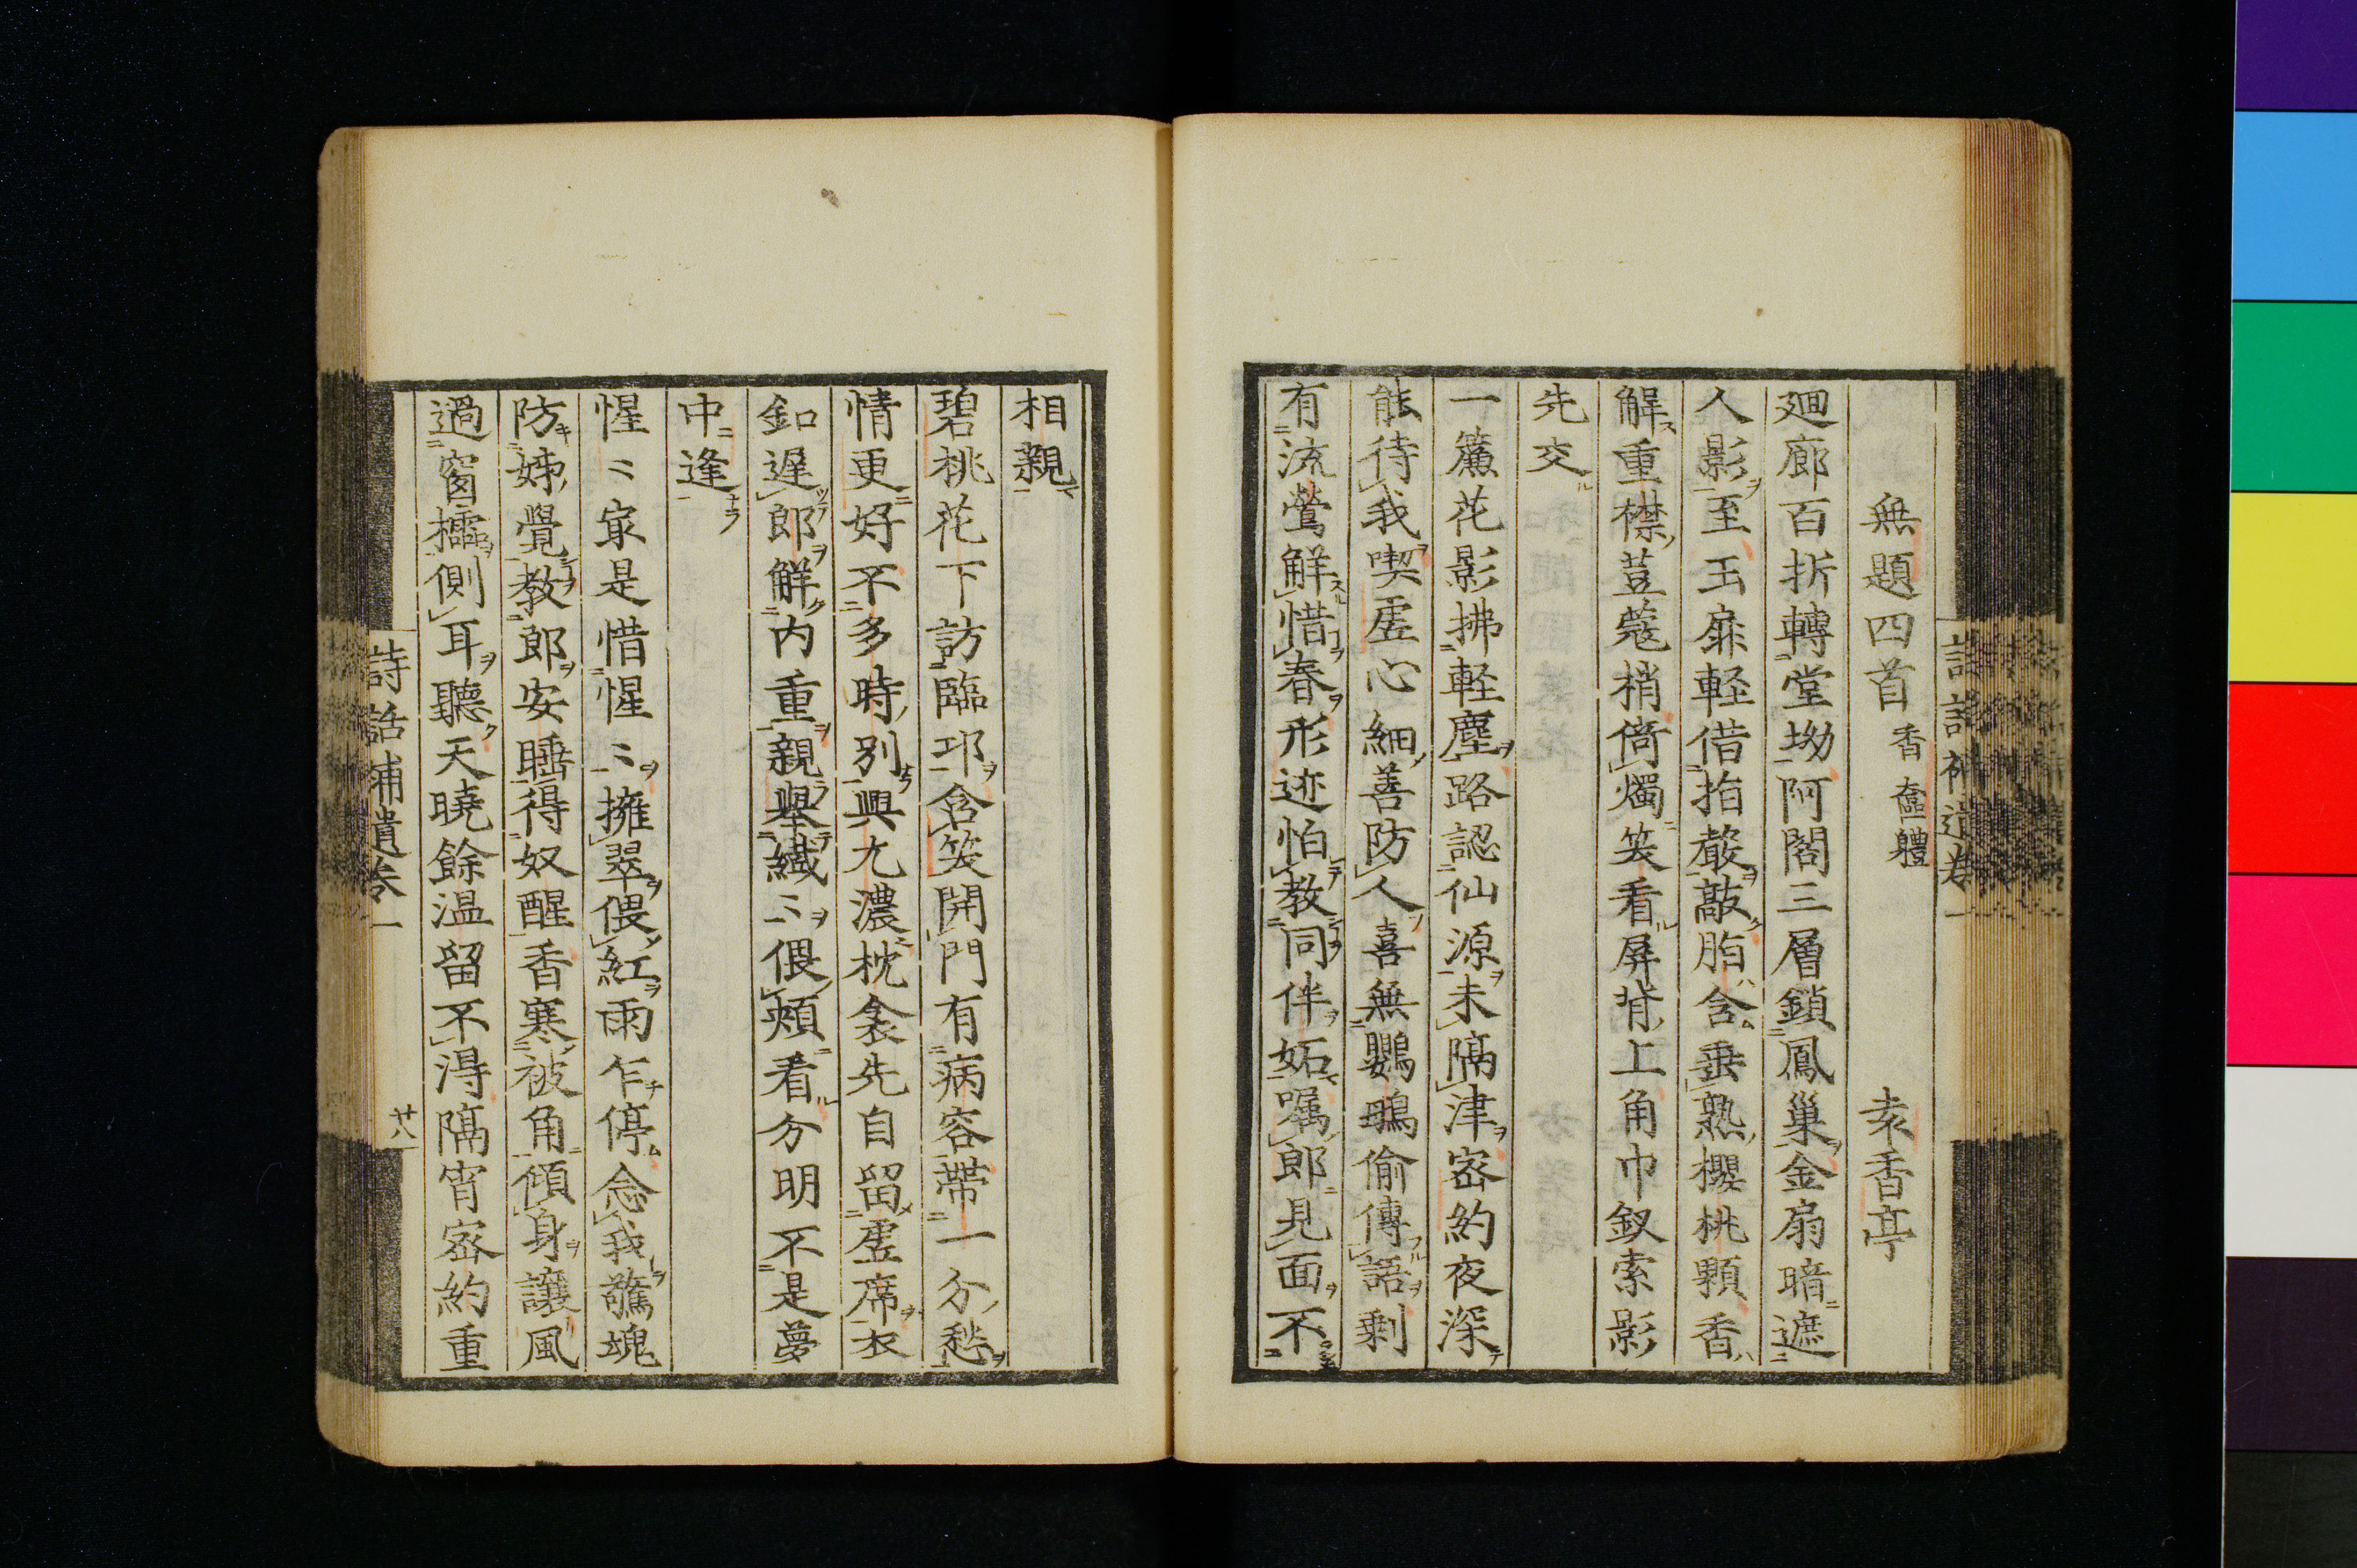 無題四首 香奩體 袁香亭
廻廊百折轉堂坳阿閣三層鎖鳳巢金扇暗遮
人影至玉扉軽借指敲脂含垂熟櫻桃顆香
解重襟荳蔻梢倚燭笑看屏背上角巾釵索影
先交
一簾花影拂軽塵路認仙源未隔津密約夜深
能待我喫虛心細善防人喜無鸚鵡偷傳語剩
有流鶯解惜春形迹怕教同伴妬嘱郎見面不
相親
碧桃花下訪臨邛含笑開門有病容帶一分愁
情更好不多時別興尤濃枕衾先自留虛席衣
釦遅郎解內重親舉纖〻偎頰看分明不是夢
中逢
惺〻最是惜惺〻擁翠偎紅雨乍停念我驚魂
防姊覺教郎安睡得奴醒香寒被角傾身讓風
過窗櫺側耳聽天曉餘温留不得隔宵密約重
詩話補遺卷一
廿八